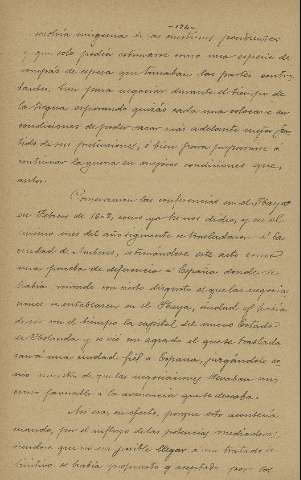 -126-
y que solo podía estimarse como una especie de
compás de espera que tomaban las partes conten-
dientes, bien para negociar durante el tiempo de
la tregua esperando quizás cada una colocarse en
condiciones de poder sacar más adelante mejor par-
tido de sus pretensiones, ó bien para prepararse á
continuar la guerra en mejores condiciones que
antes.
Comenzaron las conferencias en el Haya
en Febrero de 1608, como ya hemos dicho, y en el
mismo mes del año siguiente se trasladaron á la
ciudad de Amberes, estimándose este acto como
una prueba de deferencia á España donde se
había mirado con cierto disgusto el que las negocia-
ciones se entablasen en el Haya, ciudad
en el tiempo la capital del nuevo Estado
de Holanda y se vió con agrado el que se traslada-
ran á una ciudad fiel á España, juzgándolo co-
mo muestra de que las negociaciones llevaban un
curso favorable á la avenencia que se deseaba.
Así era, en efecto, porque esto acontecía
cuando, por el influjo de las potencias mediadoras,
viendose que no era posible llegar á un tratado de-
finitivo se había propuesto y aceptado por los